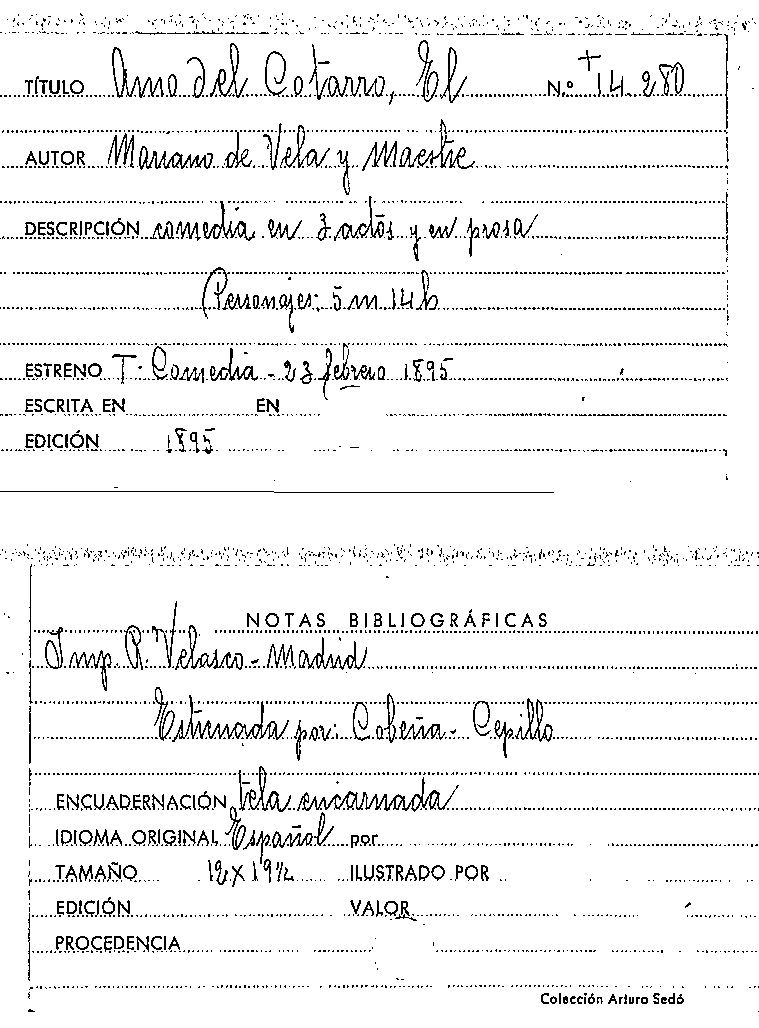 TÍTULO Amo del Cotarro, El N.º +14.280
AUTOR Mariano de Vela y Maestre
DESCRIPCIÓN comedia en 3 actos y en prosa
(Personajes: 5 m 14 h
ESTRENO T. Comedia - 23 febrero 1895
ESCRITA EN EN
EDICIÓN 1895
NOTAS BIBLIOGRÁFICAS
Imp R. Velasco - Madrid
Estrenada por: Cobeña - Cepillo
ENCUADERNACIÓN tela encarnada
IDIOMA ORIGINAL Español por
TAMAÑO 12 X 19 ½ ILUSTRADO POR
EDICIÓN VALOR
PROCEDENCIA
Colección Arturo Sedó